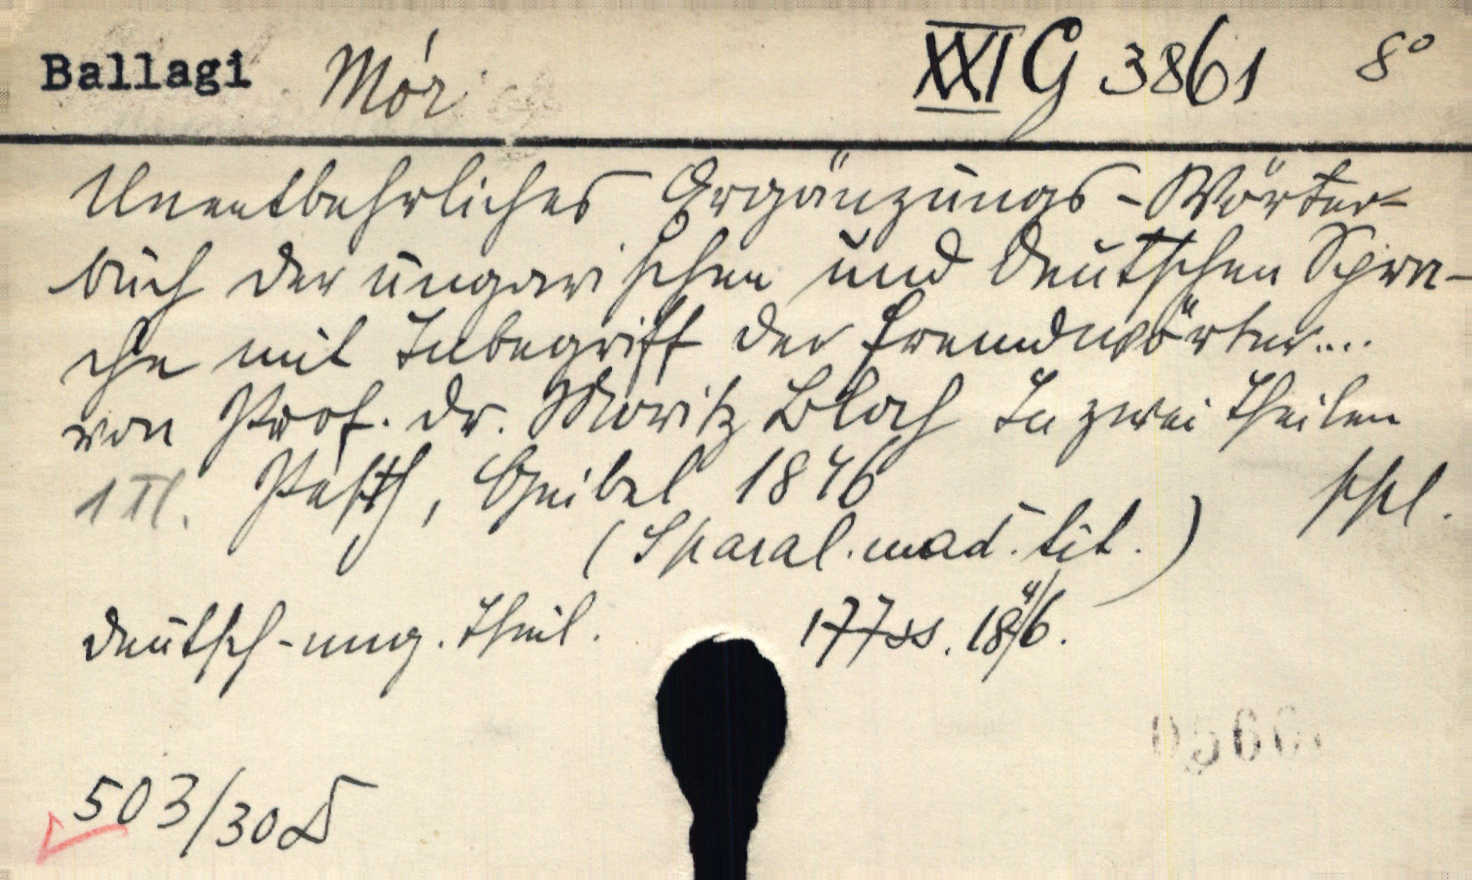 Ballagi Mór XXI G 3861 8°
Unentbehrliches Ergänzungs-Wörter-
buch der ungarischen und deutschen Spra-
che mit Inbegriff der Fremdwörter....
von Prof. Dr. Moritz Bloch In zwei Theilen
1 Tl. Pesth, Geibel 1846
(Sparal. mad. tit.)
deutsch-ung. Theil. 177 ss. 18 4/6.
0566
503/30